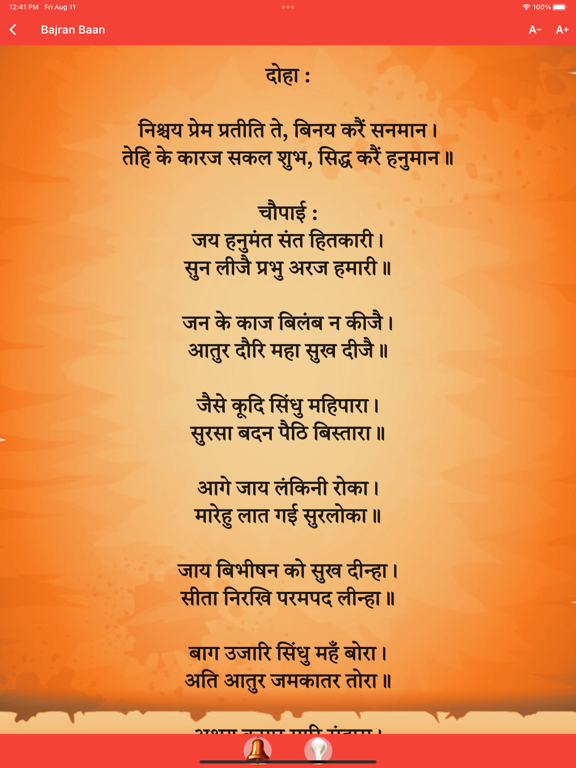 12:41 PM Fri Aug 11
100%
Bajran Baan
A-
A+
दोहा :
निश्चय प्रेम प्रतीति ते, बिनय करैं सनमान।
तेहि के कारज सकल शुभ, सिद्ध करैं हनुमान॥
चौपाई :
जय हनुमंत संत हितकारी।
सुन लीजै प्रभु अरज हमारी॥
जन के काज बिलंब न कीजै।
आतुर दौरि महा सुख दीजै॥
जैसे कूदि सिंधु महिपारा।
सुरसा बदन पैठि बिस्तारा॥
आगे जाय लंकिनी रोका।
मारेहु लात गई सुरलोका॥
जाय बिभीषन को सुख दीन्हा।
सीता निरखि परमपद लीन्हा॥
बाग उजारि सिंधु महँ बोरा।
अति आतुर जमकातर तोरा॥